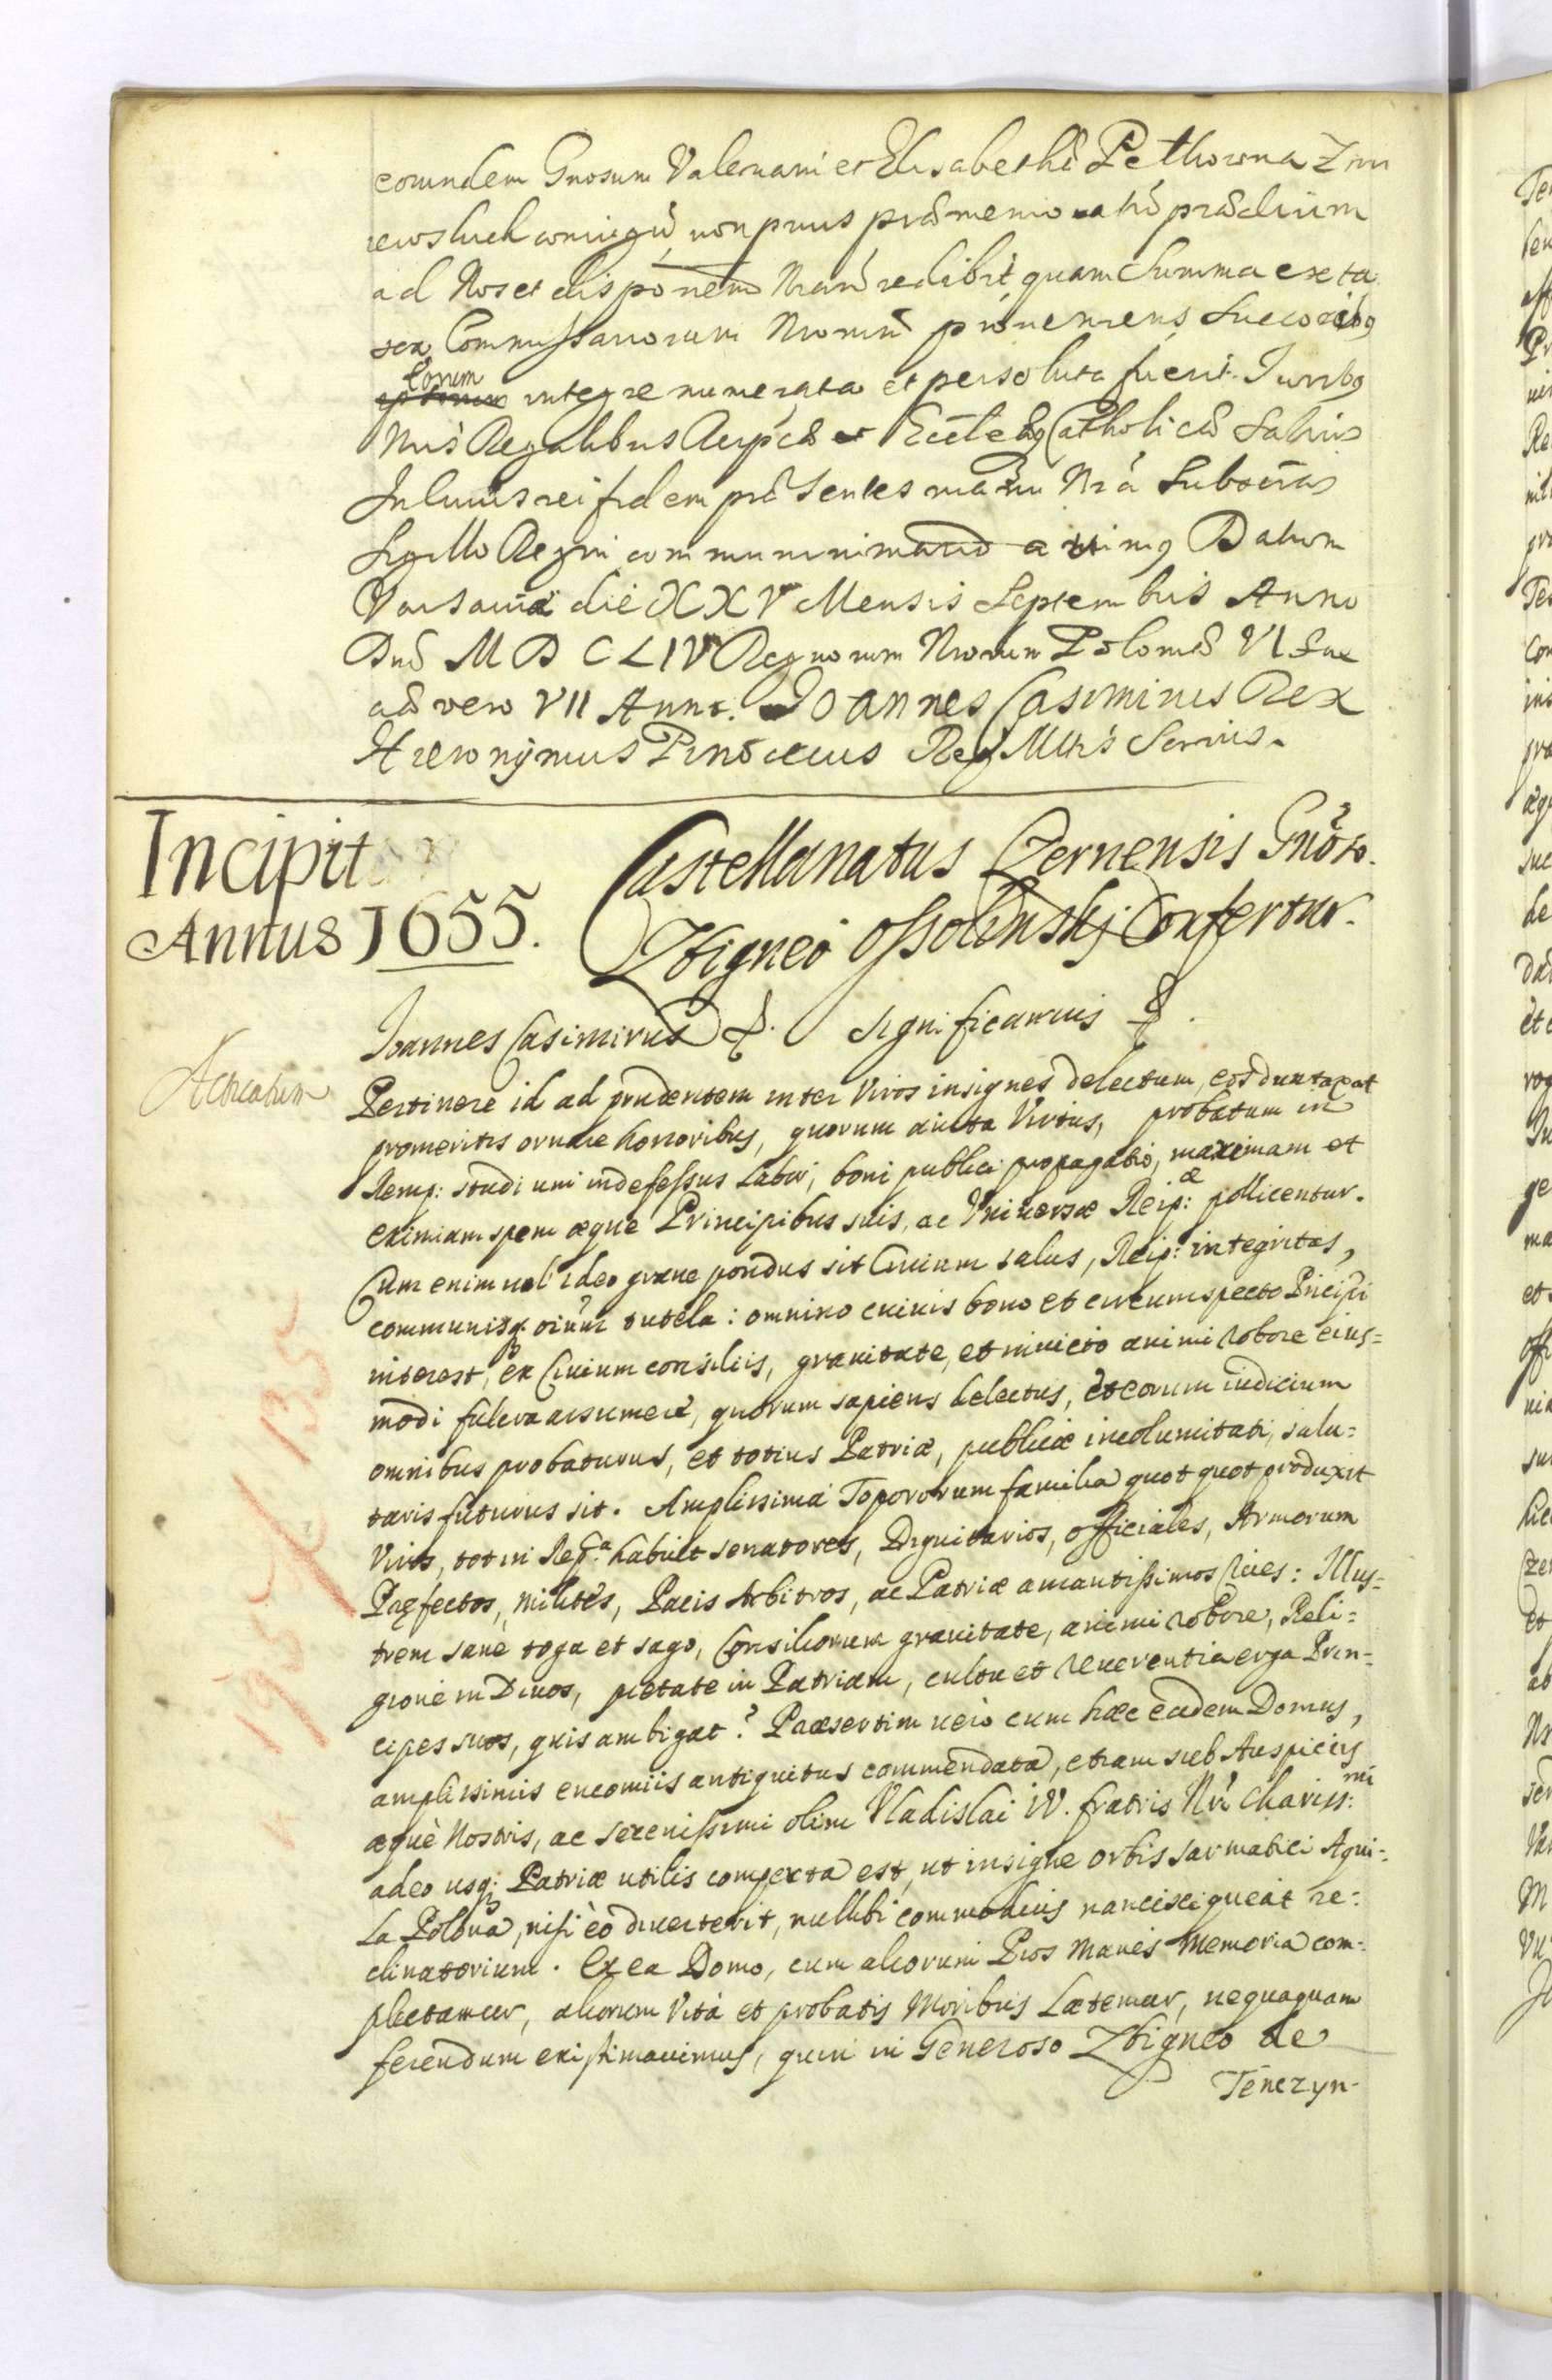 eorundem Gnosum Valeriani et Elisabethæ Pethowna Zmi
iewskich coniugũ, non prius præmemoratũ prædium
ad Nos et disponem Nram redibit quam Summa exta
sex Commissariorum Nrorum proveniens Succoribq
eorum integre numerata et persoluta fuerit. Iuribq
Nris Regalibus Reipcæ et Ecclæq Catholicæ Salvis
In cuius rei fidem præsentes manu Nra Subscras
Sigillo Regni communiri mand avimq Datum
Varsaviæ die XXV Mensis Septembris Anno
Dnĩ M D C LIV Regnorum Nrorum Poloniæ VI Sue
æ vero VII Anno. Joannes Casimirus Rex
Hieronymus Pinoccius Reg Mttis Secrius.
Incipit
Annus 1655.
Castellanatus Czernensis Gnõso.
Zbigneo Ossolinskj Confertur.
Joannes Casimirus &. Significamus &.
Acticatum
Pertinere id ad prudentem inter Viros insignes delectum, eos duntaxat
promeritis ornare honoribus, quorum avita Virtus, probatum in
Remp: studium indefessus Labor, boni publici propagatio, maximam et
eximiam spem æque Principibus suis, ac Universæ Reip:æ pollicentur.
Cum enim vel ideo grave pondus sit Civium salus, Reip: integritas,
communisq oium tutela: omnino cuivis bono et circumspecto Pricipi
interest, ex Civium consiliis, gravitate, et invicto animi robore eius=
modi fulcra assumere, quorum sapiens delectus, et eorum iudicium
omnibus probaturus, et totius Patriæ, publicæ incolumitati, salu=
taris futurus sit. Amplissima Topororum familia quot quot produxit
Viros, tot in Rep.a habuit senatores, Dignitarios, officiales, Armorum
Pæfectos, milites, Pacis Arbitros, ac Patriæ amantissimos Cives: Illus=
trem sane toga et sago, Consiliorum gravitate, animi robore, Reli=
gione in Divos, pietate in Patriam, cultu et reverentia erga Prin=
cipes suos, quis ambigat? Paesertim vero cum hæc eadem Domus,
amplissimis encomiis antiquitus commendata, etiam sub Auspiciis
æquè Nostris, ac serenissimi olim Vladislai IV. fratris Nri Chariss:mi
adeo usq: Patriæ utilis comperta est, ut insigne orbis sarmatici Aqui=
la Polona, nisi eò diverterit, nullibi commodius nancisci queat re=
clinatorium. Ex ea Domo, cum aliorum Pios Manes Memoria com=
plectamur, aliorum Vita et probatis Moribus Lætemur, nequaquam
ferendum existimavimus, quin in Generoso Zbigneo de
Tenczyn-